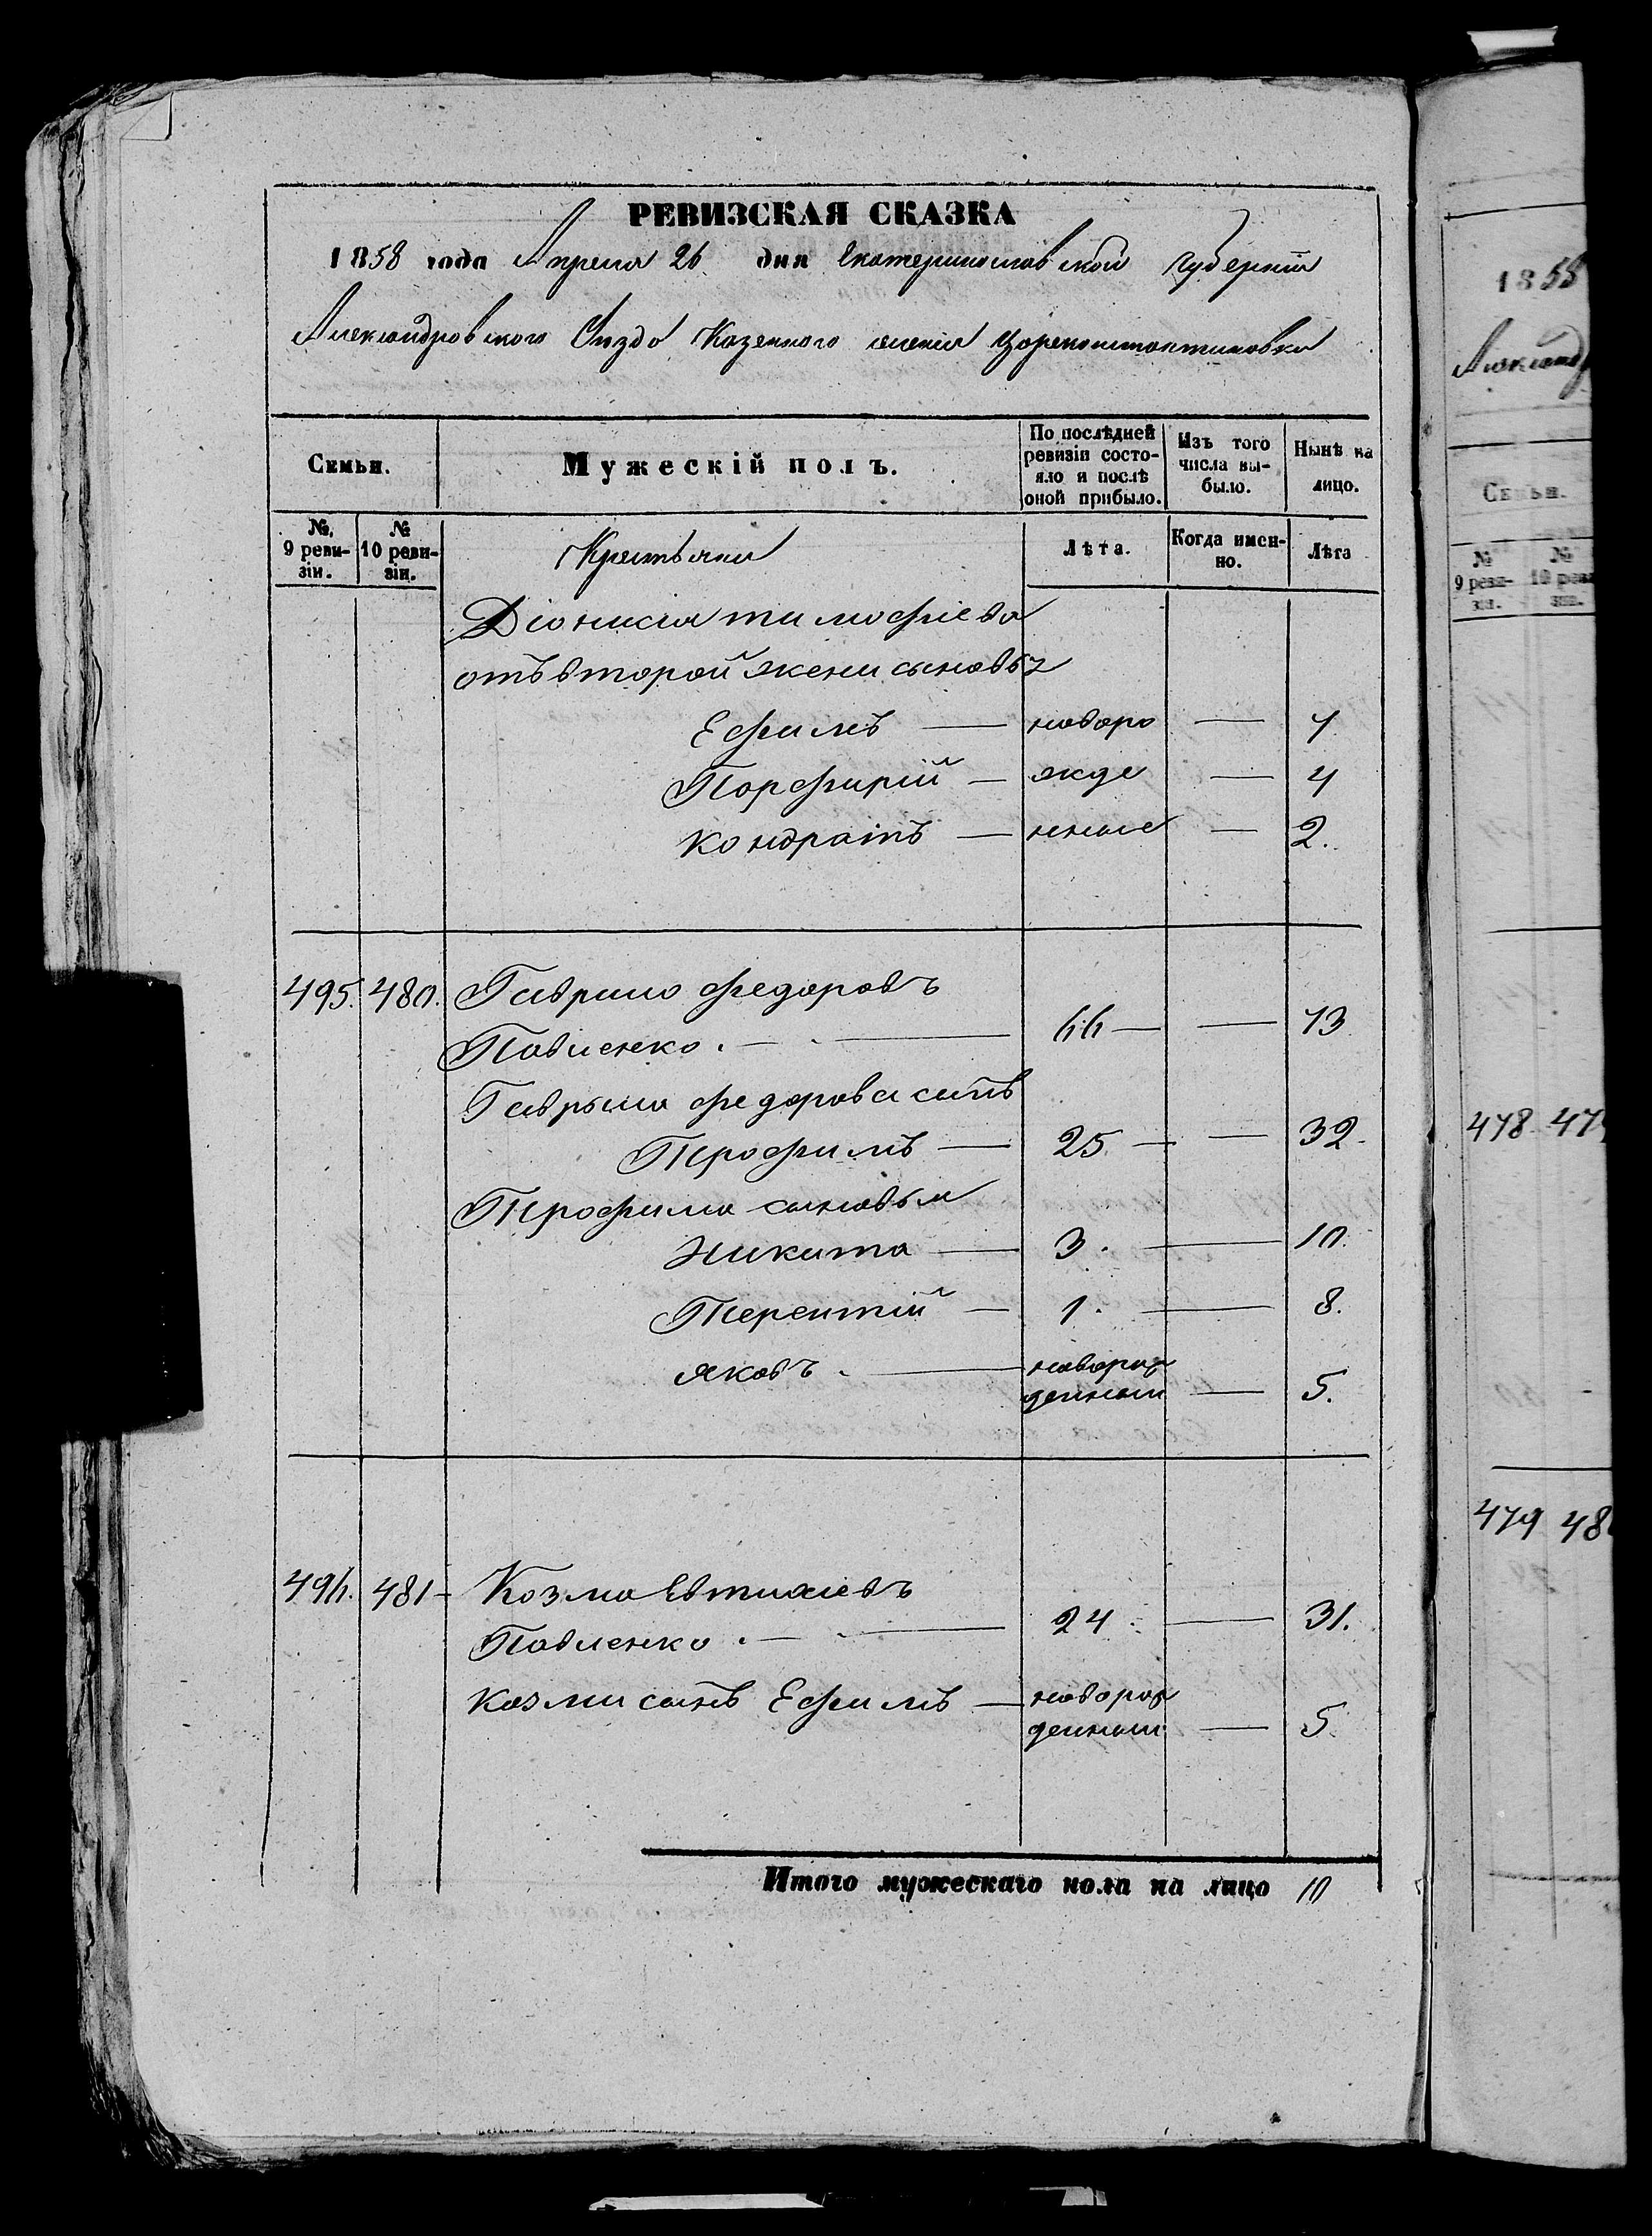 РЕВИЗСКАЯ СКАЗКА
1858 года Апреля 26 дня Екатеринославской Губернiи
Александровского Уезда Казенного селенiя Цареконстантиновки
Семьи. Мужескiй полъ. По послѣдней ревизiи состо-яло и послѣ оной прибыло. Изъ того числа вы-было. Нынѣ на лицо.
№ 9 реви-зiи. № 10 реви-зiи. Крестьяне Лѣта. Когда имен-но. Лѣта
Дiонисiя тимофiева
отъ второй жени сыновья
Ефимъ — новоро — 7
Порфирiй — жде — 4
Кондратъ — нные — 2.
495. 480. Гаврило федоровъ
Павленко. — 66 — — 73
Гаврыла федорова сынъ
Трофимъ — 25 — — 32.
Трофима сыновья
Никита — 3. — 10.
Терентiй — 1. — 8.
яковъ. — новорож
денный — 5.
496. 481 - Козма Евтихiевъ
Павленко. — 24. — 31.
Козми сынъ Ефимъ — новорож
денный — 5.
Итого мужескаго пола на лицо 10
1858
Александ
Семьи.
№ 9 реви-зiи. № 10 реви зiи.
478 47
479 48